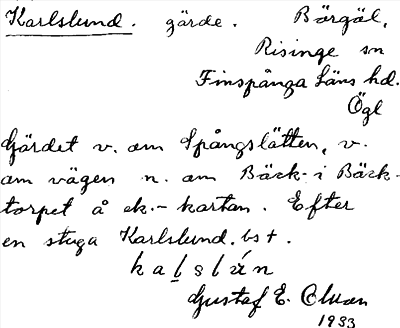 Karlslund. gärde. Börgöl,
Risinge sn
Finspånga Läns hd.
Ögl
Gärdet v. om Spångslätten, v.
om vägen n. om Bäck- i Bäck-
torpet å ek.-kartan. Efter
en stuga Karlslund. bst.
kaḷslún
Gustaf E. Olson
1933